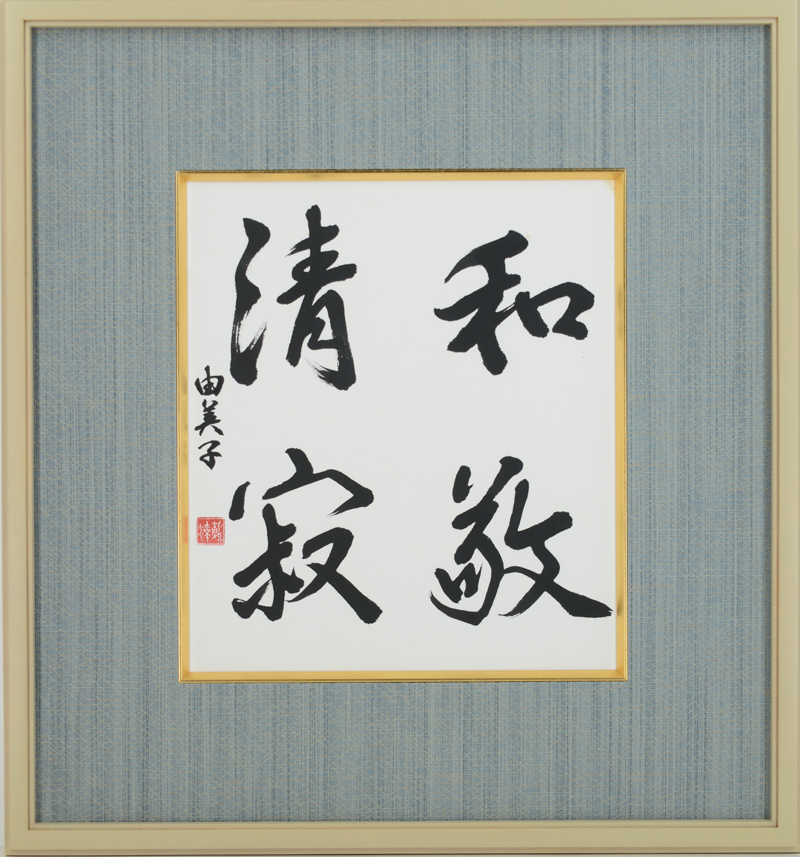 和敬
清寂
由美子